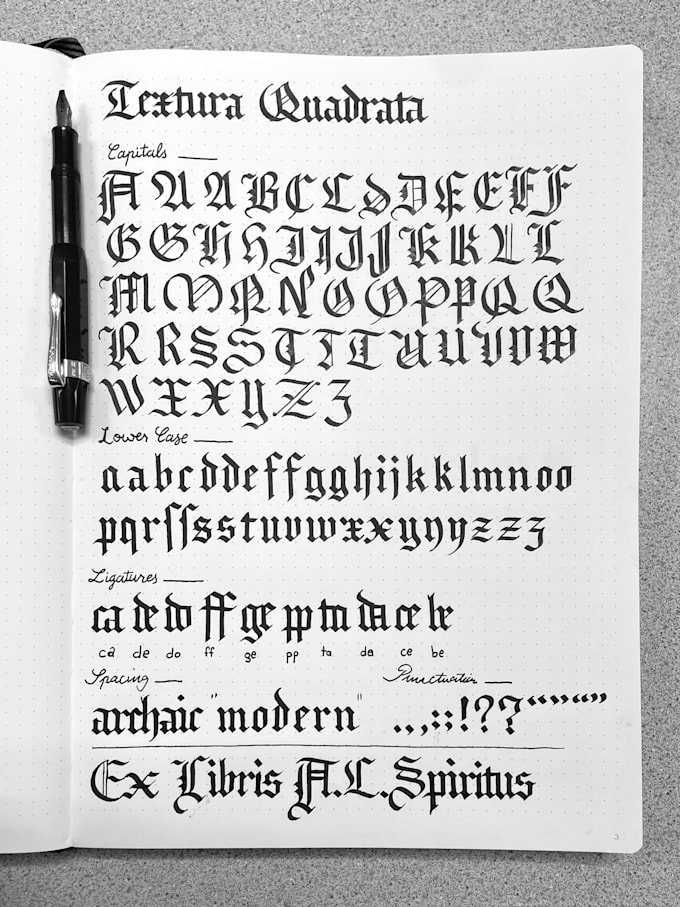 Textura Quadrata
Capitals
A A A B C C D D E E F F
G G H H I I J J K K L L
M M N N O O P P Q Q
R R S S T T T U U V V W
W X X Y Z Z
Lower Case
a a b c d d e f f g g h i j k k l m n o o
p q r ſ ſ s s t u v w x x y y y z z z
Ligatures
ca de do ff ge pp ta da ce be
ca de do ff ge pp ta da ce be
Spacing
Punctuation
archaic "modern" . . , : ; ! ? ? “ ” “ ”
Ex Libris A.L.Spiritus
3